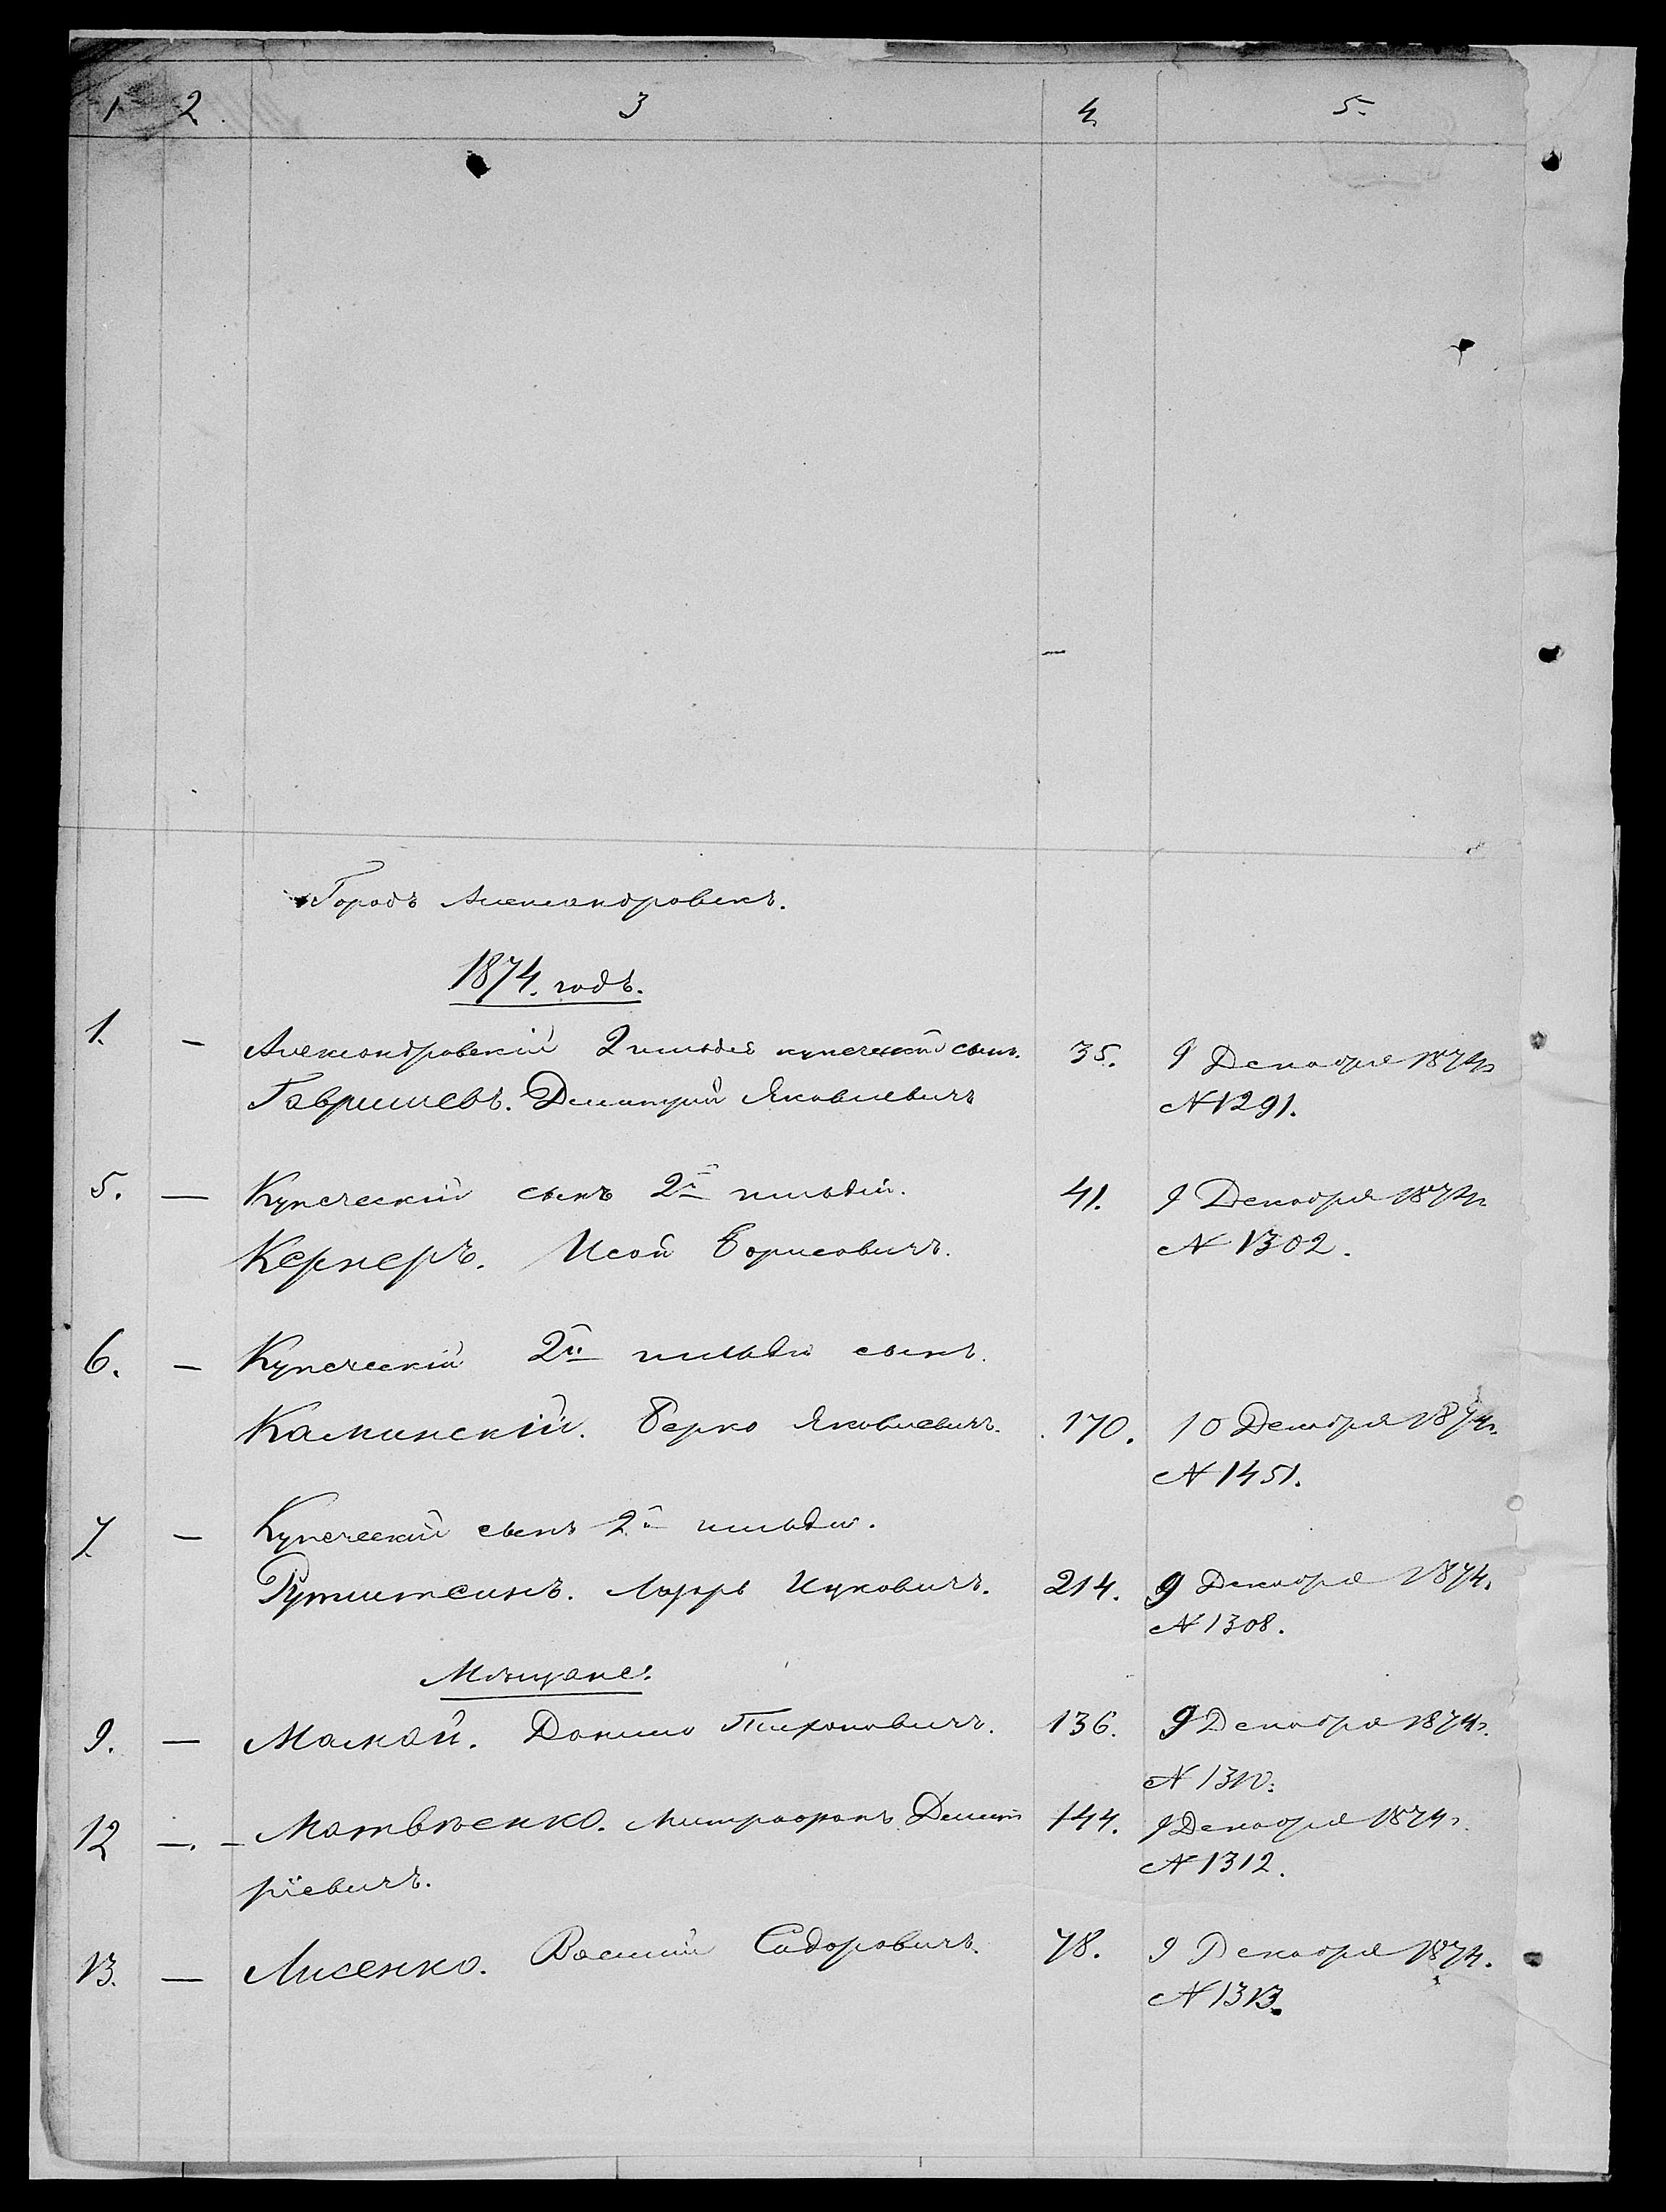 1 2. 3 4. 5.
Городъ Александровскъ.
1874. годъ.
1. — Александровскій 2 гильдіи купеческій сынъ. 35. 9 Декабря 1874 г.
Гавришевъ. Дмитрій Яковлевичъ N 1291.
5. — Купеческій сынъ 2й гильдіи. 41. 9 Декабря 1874 г.
Кернеръ. Исай Борисовичъ. N 1302.
6. — Купеческій 2й гильдіи сынъ.
Каминскій. Берко Яковлевичъ. 170. 10 Декабря 1874 г.
N 1451.
7. — Купеческій сынъ 2й гильдіи.
Ицковичъ. 214. 9 Декабря 1874.
N 1308.
Мѣщане.
9. — Мамай. Данило Тихоновичъ. 136. 9 Декабря 1874 г.
N 1310.
12 —. — Матвѣенко. Митрофанъ Дмит 144. 9 Декабря 1874 г.
ріевичъ. N 1312.
13. — Лисенко. Василій Сидоровичъ. 78. 9 Декабря 1874.
N 1313.